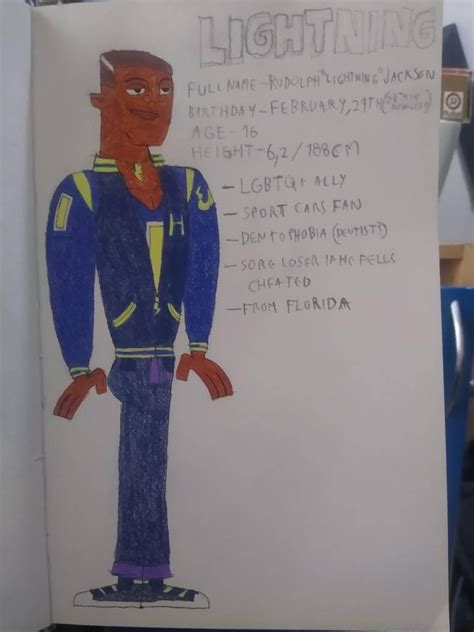 LIGHTNING
FULL NAME - RUDOLPH "LIGHTNING" JACKSON
BIRTHDAY - FEBRUARY, 29TH
AGE - 16
HEIGHT - 6,2 / 188CM
- LGBTQ+ ALLY
- SPORT CARS FAN
- DENTOPHOBIA (DENTIST)
- SORE LOSER
CHEATED
- FROM FLORIDA
H